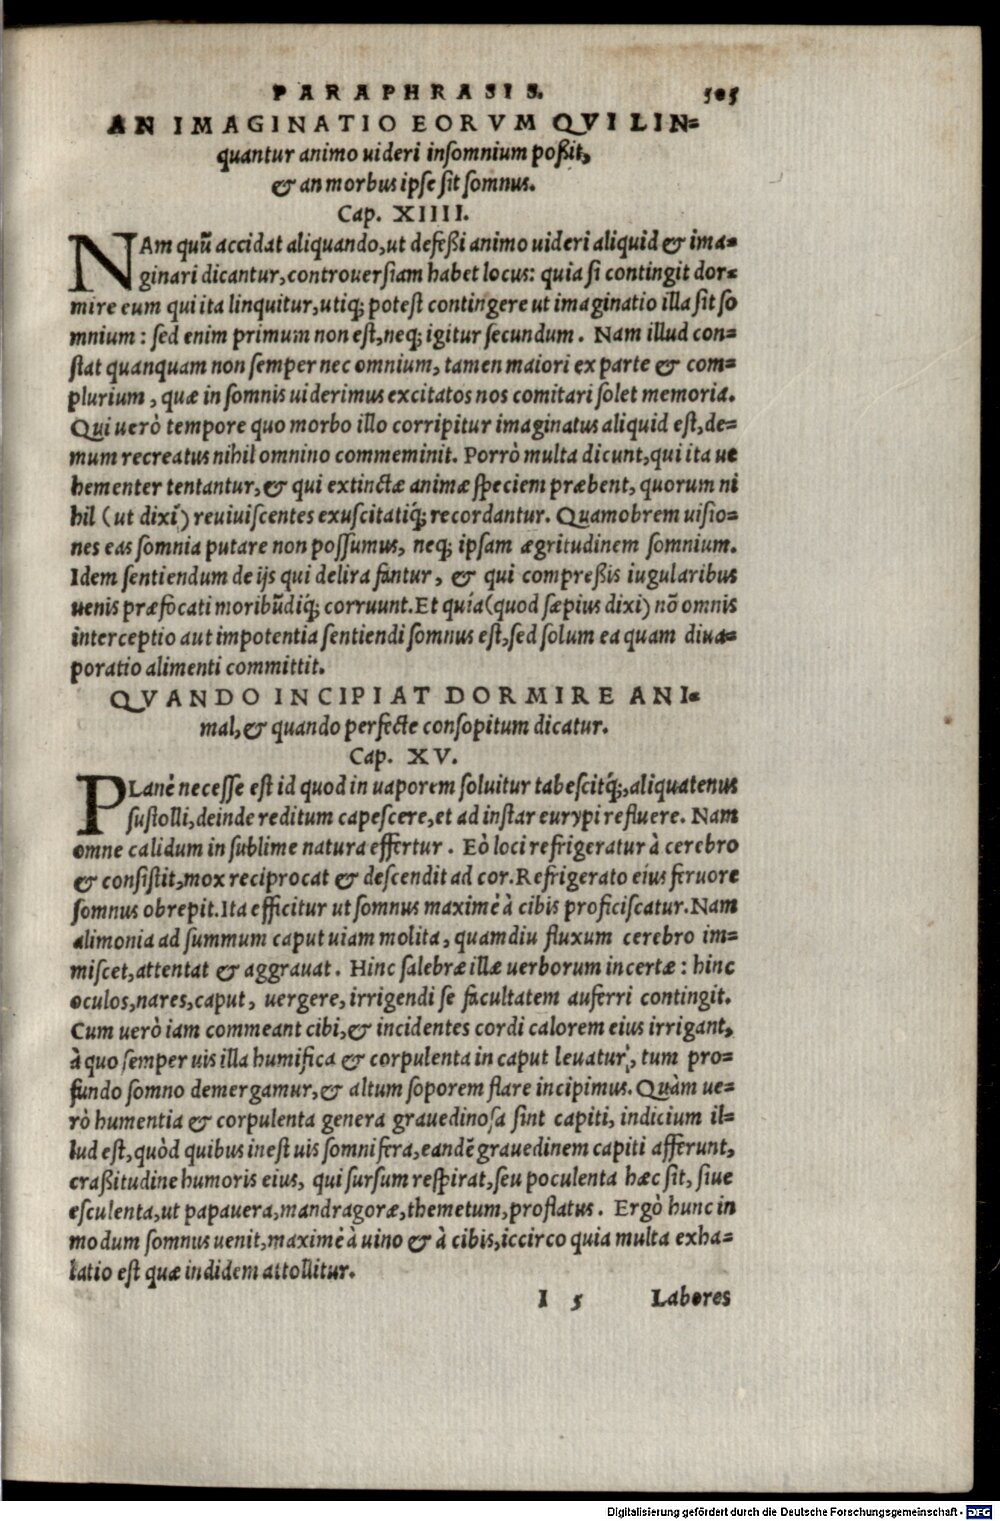 PARAPHRASIS. 505
AN IMAGINATIO EORVM QVI LIN-
quantur animo uideri insomnium poßit,
& an morbus ipse sit somnus.
Cap. XIIII.
NAm quū accidat aliquando, ut defeßi animo uideri aliquid & ima-
ginari dicantur, controuersiam habet locus: quia si contingit dor-
mire eum qui ita linquitur, utiq; potest contingere ut imaginatio illa sit so
mnium: sed enim primum non est, neq; igitur secundum. Nam illud con-
stat quanquam non semper nec omnium, tamen maiori ex parte & com-
plurium, quæ in somnis uiderimus excitatos nos comitari solet memoria.
Qui uerò tempore quo morbo illo corripitur imaginatus aliquid est, de-
mum recreatus nihil omnino commeminit. Porrò multa dicunt, qui ita ue
hementer tentantur, & qui extinctæ animæ speciem præbent, quorum ni
hil (ut dixi) reuiuiscentes exuscitatiq́; recordantur. Quamobrem uisio-
nes eas somnia putare non possumus, neq; ipsam ægritudinem somnium.
Idem sentiendum de ijs qui delira fantur, & qui compreßis iugularibus
uenis præfocati moribūdiq́; corruunt. Et quia (quod sæpius dixi) nō omnis
interceptio aut impotentia sentiendi somnus est, sed solum ea quam diua-
poratio alimenti committit.
QVANDO INCIPIAT DORMIRE ANI-
mal, & quando perfecte consopitum dicatur.
Cap. XV.
PLanè necesse est id quod in uaporem soluitur tabescitq́;, aliquatenus
sustolli, deinde reditum capescere, et ad instar eurypi refluere. Nam
omne calidum in sublime natura effertur. Eò loci refrigeratur à cerebro
& consistit, mox reciprocat & descendit ad cor. Refrigerato eius feruore
somnus obrepit. Ita efficitur ut somnus maximè à cibis proficiscatur. Nam
alimonia ad summum caput uiam molita, quamdiu fluxum cerebro im-
miscet, attentat & aggrauat. Hinc salebræ illæ uerborum incertæ: hinc
oculos, nares, caput, uergere, irrigendi se facultatem auferri contingit.
Cum uerò iam commeant cibi, & incidentes cordi calorem eius irrigant,
à quo semper uis illa humifica & corpulenta in caput leuatur, tum pro-
fundo somno demergamur, & altum soporem flare incipimus. Quàm ue-
rò humentia & corpulenta genera grauedinosa sint capiti, indicium il-
lud est, quòd quibus inest uis somnifera, eandē grauedinem capiti afferunt,
craßitudine humoris eius, qui sursum respirat, seu poculenta hæc sit, siue
esculenta, ut papauera, mandragoræ, themetum, proflatus. Ergò hunc in
modum somnus uenit, maximè à uino & à cibis, iccirco quia multa exha-
latio est quæ indidem attollitur.
I 5 Labores
Digitalisierung gefördert durch die Deutsche Forschungsgemeinschaft - DFG